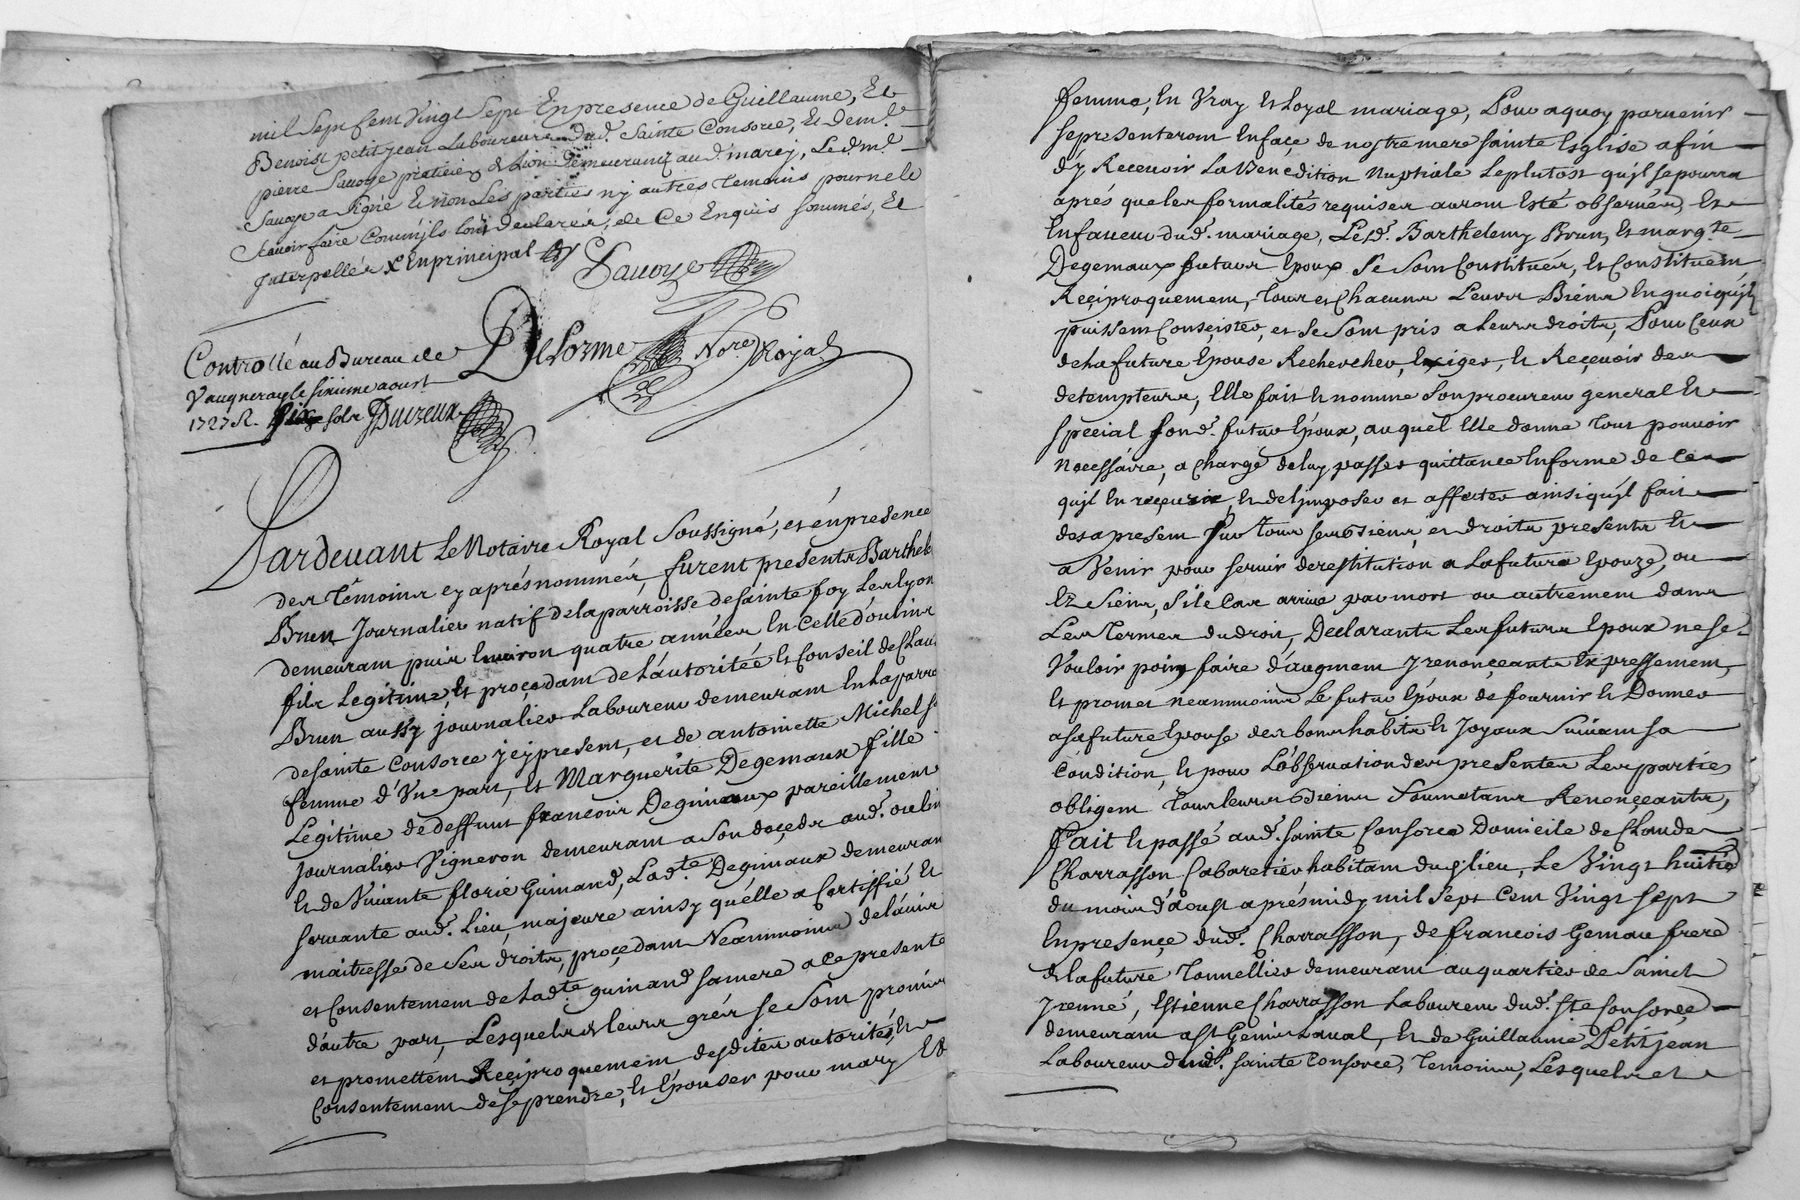 mil sept cent vingt sept En presence de Guillaume, Et
Benoist petit jean Laboureurs dud. Sainte Consorce, Et dem.e
pierre Sauoye praticien de Lion Demeurant au d. marcy, Led. m.e
Sauoye a signé Et non Les parties ny autres temoins pour ne le
scauoir faire Comm'ils l'ont declarés, de Ce Enquis sommés, Et
Interpellés En principal
Sauoye
Delorme Nore. Royal
Controllé au Bureau de
Vaugneray le sixieme aoust
1727 R. six sols Duizeux
Pardeuant Le Notaire Royal Soussigné, et én presence
des témoins cy aprés nommés, furent presents Barthele
Brun Journalier natif de la parroisse de sainte foy Les Lyon
demeurant puis Enuiron quatre années En Celle d'oulins
fils Legitime, Et proçedant de L'autoritée Et Conseil de Claud
Brun aussy journalier Laboureur demeurant En la parro
de sainte Consorce icy present, et de antoinette Michel s
femme d'Vne part, Et Marguerite Degemaux fille
Legitime de deffunt françois Degimaux pareillement
journalier Vigneron demeurant a son deçeds aud. oulin
Et de Viuante florie Guinand, Lad.te Degimaux demeuran
seruante aud. Lieu, majeure ainsy qu'élle a Certiffié Et
maitresse de Ses droits, proçedant Neanmoins de l'áuis
et Consentement de Lad.te guinand sa mere a Ce presente
d'autre part, Lesquels de leurs grés se Sont promis
et promettent Reçiproquement desdites autorités, Et
Consentement de se prendre, Et Epouser pour mary Et
femme, En Vray Et Loyal mariage, Pour a quoy paruenir
se presenteront En façe de nostre mere sainte Esglise afin
d'y Receuoir La Benedition Nuptiale Le plutost qu'jl se pourra
aprés que les formalités requises auront Esté obseruées, Et
En faueur dud. mariage, Lesd. Barthelemy Brun, Et marg.te
Degemaux futurs Epoux Se Sont Constitués, Et Constituent
Reçiproquement, tous et Chacuns Leurs Biéns En quoi qu'jls
puissent Conseister, et se Sont pris a Leurs droits, Pour Ceux
de la future Epouse Rechercher, Exiger, Et Reçeuoir des
detempteurs, Elle fait Et nomme Son procureur general Et
special sond. futur Epoux, auquel Elle donne tout pouvoir
Necessáire, a Charge de luy passer quittance En forme de Ce
qu'jl En reçeura, Et del'jmposer et affecter ainsi qu'jl fait
des a present sur tous ses Biens, et droits presents Et
a Venir pour seruir de restitution a La future Epouze, ou
Es Siens, si le Cas arriue par mort ou autrement dans
Les termes du droit, Declarants Les futurs Epoux ne se
Vouloir point faire d'áugment y renonçeants Expressement,
Et promet neanmoins Le futur Epoux de fournir Et Donner
a sa future Epouse des bons habits Et Joyaux Suiuant sa
Condition, Et pour L'óbseruation des presentes Les parties
obligent tous leurs Biens Soumetants Renonçeants,
Fait Et passé aud. sainte Consorce Domicile de Claude
Charrasson Cabaretier habitant dud. lieu, Le Vingt huitie
du mois d'áoust aprés midy mil Sept Cent Vingt sept
En presençe dud. Charrasson, de francois Gemau frere
de la future tonnellier demeurant au quartier de Sainct
jrenné, Estienne Charrasson Laboureur dud. Ste Consorçe
demeurant a St Genis Laual, Et de Guillaume Petit jean
Laboureur dud. sainte Consorce, Temoins, Lesquels et